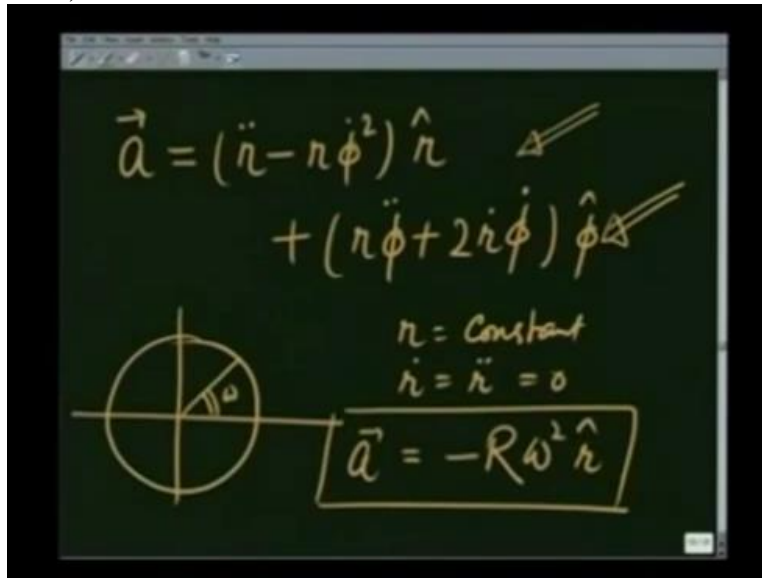 a⃗ = (r̈ − rφ̇²) r̂
+ (rφ̈ + 2ṙφ̇) φ̂
r = Constant
ṙ = r̈ = 0
ω
a⃗ = −Rω² r̂